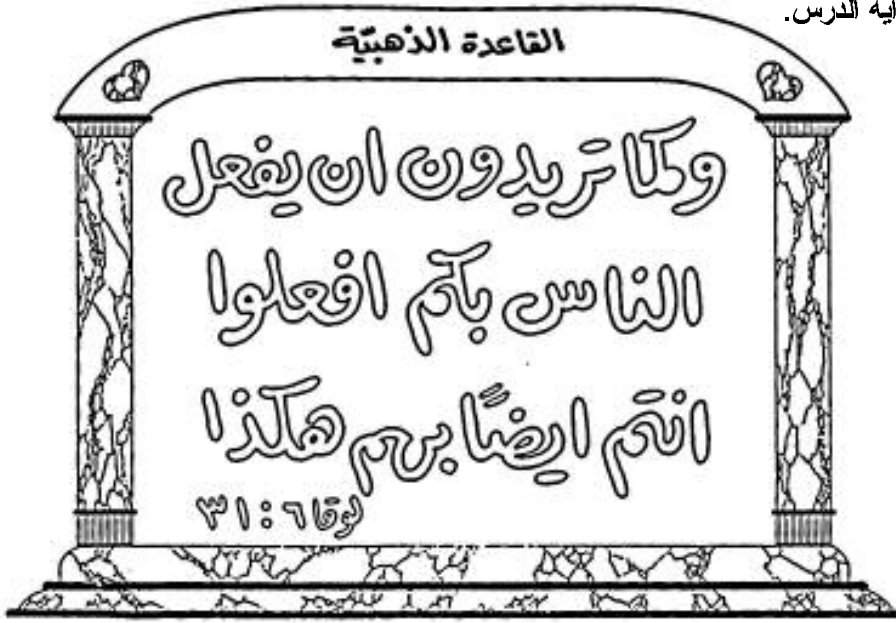 ايه الدرس.
القاعدة الذهبيّة
وكما تريدون ان يفعل
الناس بكم افعلوا
انتم ايضًا بهم هكذا
لوقا ٦ : ٣١